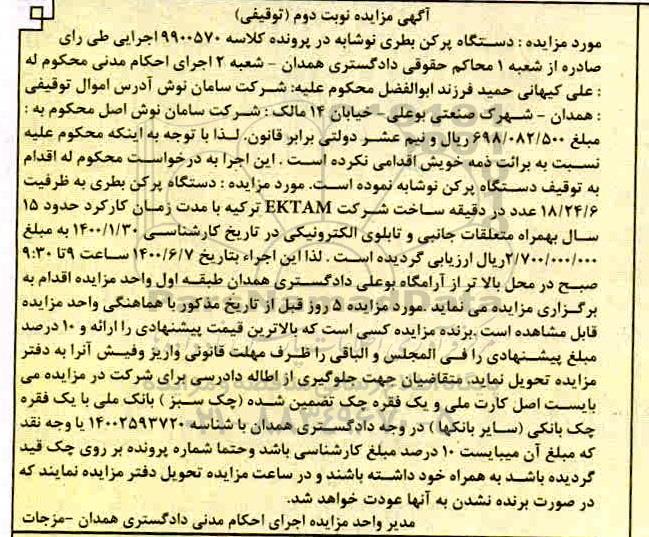 آگهی مزایده نوبت دوم (توقیفی)
مورد مزایده : دستگاه پرکن بطری نوشابه در پرونده کلاسه ۹۹۰۰۵۷۰ اجرایی طی رای
صادره از شعبه ۱ محاکم حقوقی دادگستری همدان - شعبه ۲ اجرای احکام مدنی محکوم له
: علی کیهانی حمید فرزند ابوالفضل محکوم علیه: شرکت سامان نوش آدرس اموال توقیفی
: همدان - شهرک صنعتی بوعلی- خیابان ۱۴ مالک : شرکت سامان نوش اصل محکوم به :
مبلغ ۶۹۸/۰۸۲/۵۰۰ ریال و نیم عشر دولتی برابر قانون. لذا با توجه به اینکه محکوم علیه
نسبت به برائت ذمه خویش اقدامی نکرده است . این اجرا به درخواست محکوم له اقدام
به توقیف دستگاه پرکن نوشابه نموده است. مورد مزایده : دستگاه پرکن بطری به ظرفیت
۱۸/۲۴/۶ عدد در دقیقه ساخت شرکت EKTAM ترکیه با مدت زمان کارکرد حدود ۱۵
سال بهمراه متعلقات جانبی و تابلوی الکترونیکی در تاریخ کارشناسی ۱۴۰۰/۱/۳۰ به مبلغ
۲/۷۰۰/۰۰۰/۰۰۰ریال ارزیابی گردیده است . لذا این اجراء بتاریخ ۱۴۰۰/۶/۷ ساعت ۹تا ۹:۳۰
صبح در محل بالا تر از آرامگاه بوعلی دادگستری همدان طبقه اول واحد مزایده اقدام به
برگزاری مزایده می نماید .مورد مزایده ۵ روز قبل از تاریخ مذکور با هماهنگی واحد مزایده
قابل مشاهده است .برنده مزایده کسی است که بالاترین قیمت پیشنهادی را ارائه و ۱۰ درصد
مبلغ پیشنهادی را فی المجلس و الباقی را ظرف مهلت قانونی واریز وفیش آنرا به دفتر
مزایده تحویل نماید. متقاضیان جهت جلوگیری از اطاله دادرسی برای شرکت در مزایده می
بایست اصل کارت ملی و یک فقره چک تضمین شده (چک سبز ) بانک ملی با یک فقره
چک بانکی (سایر بانکها ) در وجه دادگستری همدان با شناسه ۱۴۰۰۲۵۹۳۷۲۰ یا وجه نقد
که مبلغ آن میبایست ۱۰ درصد مبلغ کارشناسی باشد وحتما شماره پرونده بر روی چک قید
گردیده باشد به همراه خود داشته باشند و در ساعت مزایده تحویل دفتر مزایده نمایند که
در صورت برنده نشدن به آنها عودت خواهد شد.
مدیر واحد مزایده اجرای احکام مدنی دادگستری همدان -مزجات